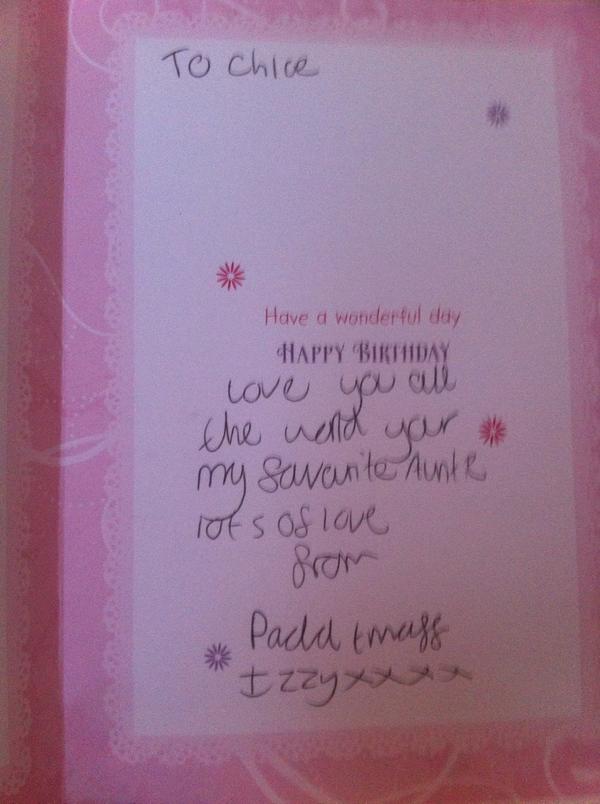 To Chloe
Have a wonderful day
HAPPY BIRTHDAY
Love you all
the world your
my favarite Aunte
lots of love
from
Izzy xxxx